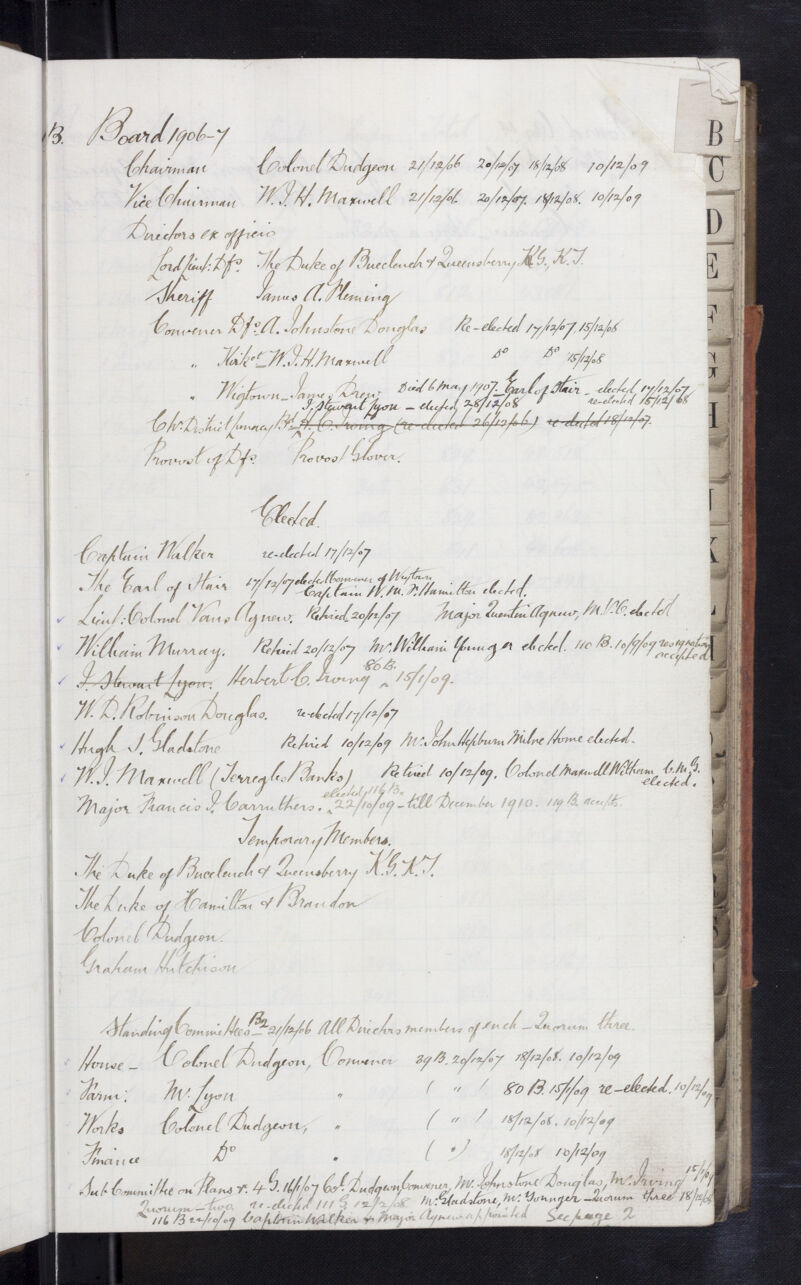 B. Board 1906-7
Chairman Colonel Dudgeon 21/12/06 20/12/07 18/12/08 10/12/09
Vice Chairman W.J.H. Maxwell 21/12/06 20/12/07. 18/12/08. 10/12/09
Directors ex officio
Lord Lieut: Dfs. The Duke of Buccleuch & Queensberry K.G., K.T.
Sheriff James A. Fleming
Convener Dfs. A. Johnstone Douglas Re-elected 17/12/07 15/12/08
" Kirkct. W.J.H. Maxwell Do Do 15/12/08
" Wigtown - James Drew Died 6 May 1907. - Earl of Stair - elected 17/12/07 re-elected 15/12/08
J. Stewart Lyon - elected 28/12/08
Chn. District Lunacy Bd. H.C. Irving (re-elected 26/12/06) re-elected 18/12/07.
Provost of Dfs. Provost Glover.
Elected.
Captain Walker re-elected 17/12/07
The Earl of Stair 17/12/07 elected Convener of Wigtown
Captain W.M. F. Hamilton elected.
Lieut: Colonel Vans Agnew. Retired 20/12/07 Major Quentin Agnew, M.V.O. elected
William Murray. Retired 20/12/07 Mr. William Younger elected. 110 B. 10/9/09 resignation accepted
J. Stewart Lyon. Herbert C. Irving 80 B. 15/1/09.
W.D. Robinson Douglas. re-elected 17/12/07
Hugh S. Gladstone Retired 10/12/09 Mr. John Hepburn Milne Home elected.
W.J. Maxwell (Terregles Banks) Retired 10/12/09. Colonel Maxwell Witham C.M.G. elected.
Major Francis J. Carruthers. elected 116 B. 22/10/09 - till December 1910. 119 B. accepts.
Temporary Members.
The Duke of Buccleuch & Queensberry K.G. K.T.
The Duke of Hamilton & Brandon
Colonel Dudgeon.
Graham Hutchison
Standing Committees B2 21/12/06 All Directors members of each - Quorum three.
House - Colonel Dudgeon, Convener 39 B. 20/12/07 18/12/08. 10/12/09
Farm: Mr. Lyon " ( " ) 80 B. 15/1/09 re-elected. 10/12/09
Works Colonel Dudgeon, " ( " ) 18/12/08. 10/12/09
Finance Do " ( " ) 18/12/08 10/12/09
Sub Committee on Plans &. 4 G. 16/1/07 Col. Dudgeon Convener, Mr. Johnstone Douglas, Mr. Irving
Quorum - two re-elected 111 G 12/2/08 Mr. Gladstone, Mr. Younger - Quorum three 18/12/08
116 B 22/10/09 Captain Walker & Major Agnew appointed See page 2
B
C
D
E
F
G
H
K
L